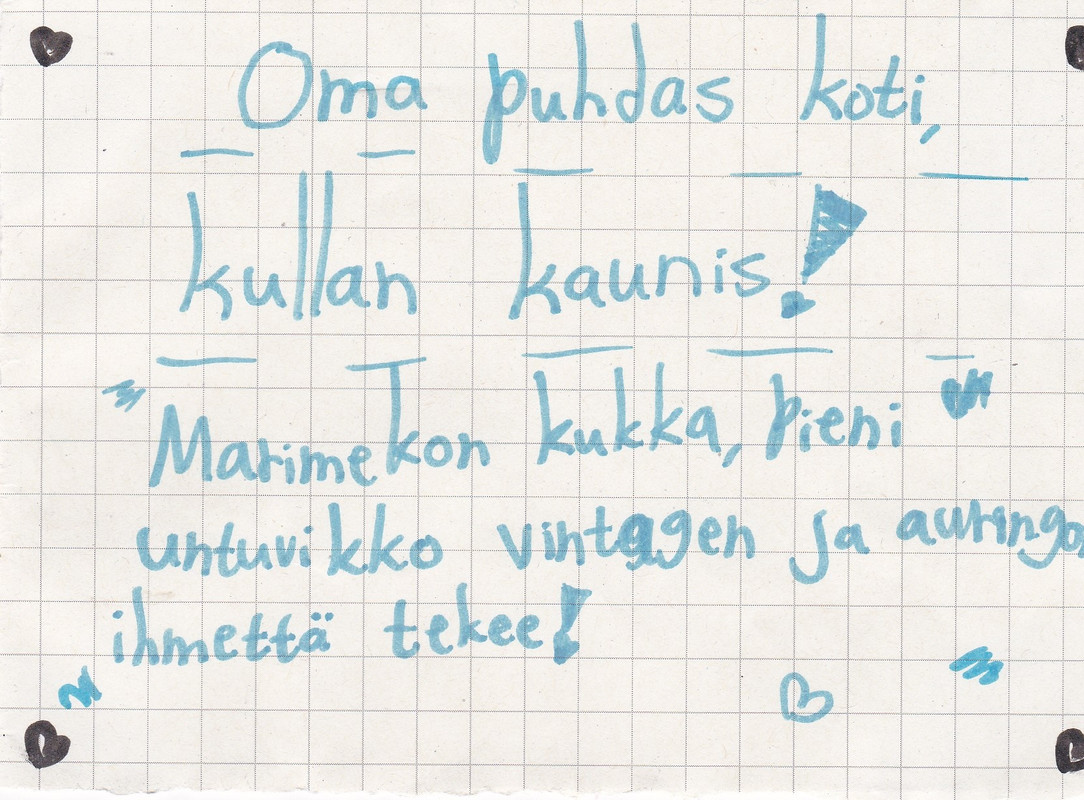 Oma puhdas koti,
kullan kaunis!
Marimekon kukka, pieni
untuvikko vintagen ja auringon
ihmettä tekee!